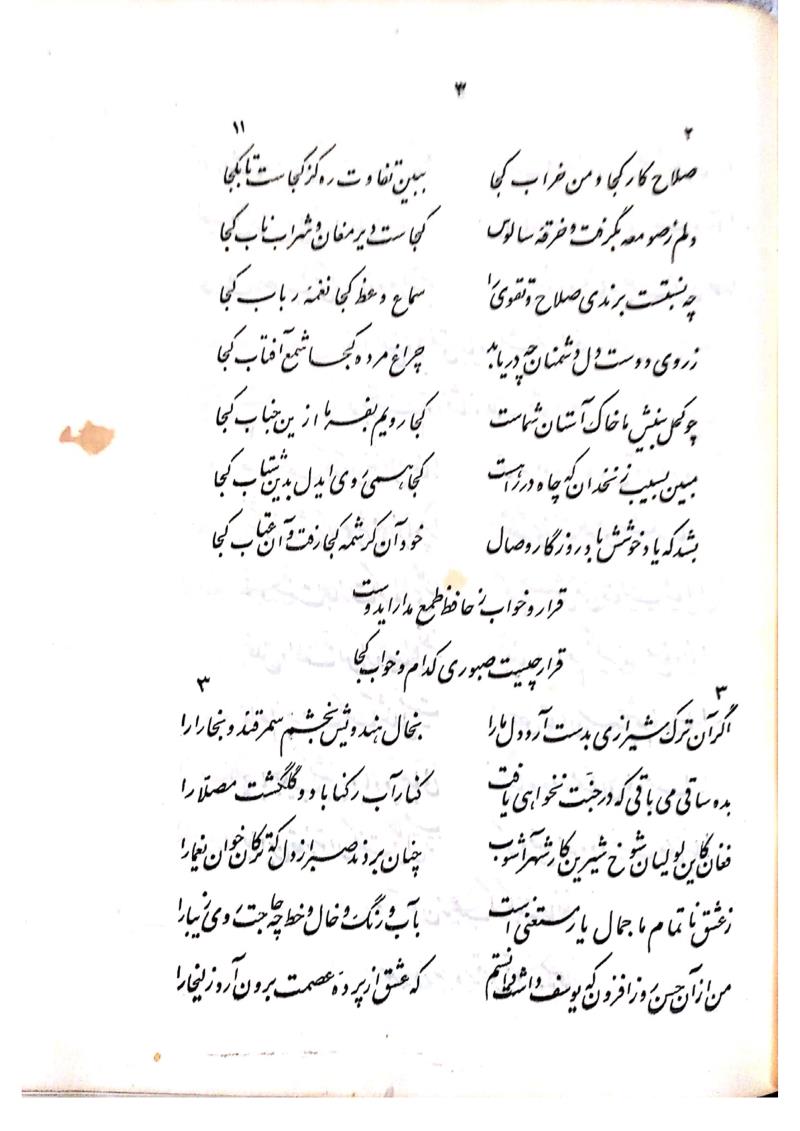 ۳
۲ ۱۱
صلاح کار کجا و من خراب کجا ببین تفاوت ره کز کجاست تا بکجا
دلم ز صومعه بگرفت و خرقهٔ سالوس کجاست دیر مغان و شراب ناب کجا
چه نسبتست برندی صلاح و تقوی را سماع وعظ کجا نغمهٔ رباب کجا
ز روی دوست دل دشمنان چه دریابد چراغ مرده کجا شمع آفتاب کجا
چو کحل بینش ما خاک آستان شماست کجا رویم بفرما ازین جناب کجا
مبین بسیب زنخدان که چاه در راهست کجا همی‌روی ایدل بدین شتاب کجا
بشد که یاد خوشش باد روزگار وصال خود آن کرشمه کجا رفت و آن عتاب کجا
قرار و خواب ز حافظ طمع مدار ایدوست
قرار چیست صبوری کدام و خواب کجا
۳ ۳
اگر آن ترک شیرازی بدست آرد دل ما را بخال هندویش بخشم سمرقند و بخارا را
بده ساقی می باقی که در جنّت نخواهی یافت کنار آب رکناباد و گلگشت مصلّا را
فغان کاین لولیان شوخ شیرین کار شهرآشوب چنان بردند صبر از دل که ترکان خوان یغما را
ز عشق ناتمام ما جمال یار مستغنی است بآب و رنگ و خال و خط چه حاجت روی زیبا را
من از آن حسن روزافزون که یوسف داشت دانستم که عشق از پردهٔ عصمت برون آرد زلیخا را